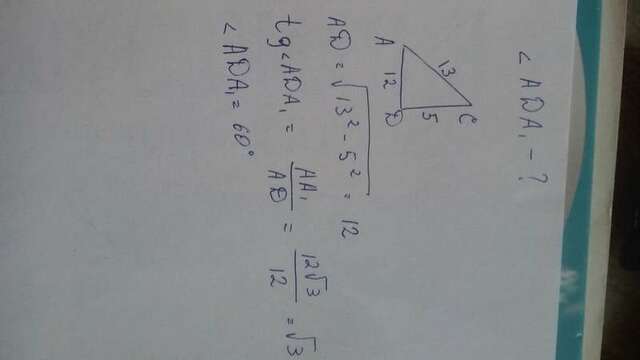 < ADA₁ - ?
A 13 C
12 5
D
AD = √13² - 5² = 12
tg < ADA₁ = AA₁/AD = 12√3/12 = √3
< ADA₁ = 60°